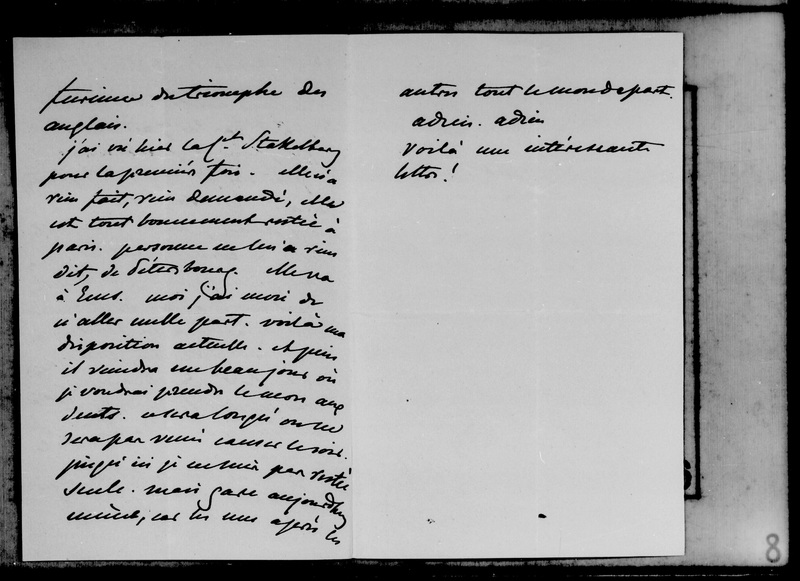 furieuse du triomphe des
anglais.
j'ai vu hier la C^t. Stakelberg
pour la première fois. Elle n'a
rien fait, rien demandé, elle
est tout bonnement restée à
paris. personne ne lui a rien
dit, de Pétersbourg. Elle va
à Ems. moi j'ai envie de
n'aller nulle part. voilà ma
disposition actuelle. et puis
il viendra un beau jour où
je voudrai prendre le mors aux
dents. ce sera lorsqu'on ne
sera pas venu causer le soir.
jusqu'ici je ne suis pas restée
seule. mais gare aujourd'hui
même, car les uns après les
autres tout le monde part.
adieu. adieu
voilà une intéressante
lettre!
8